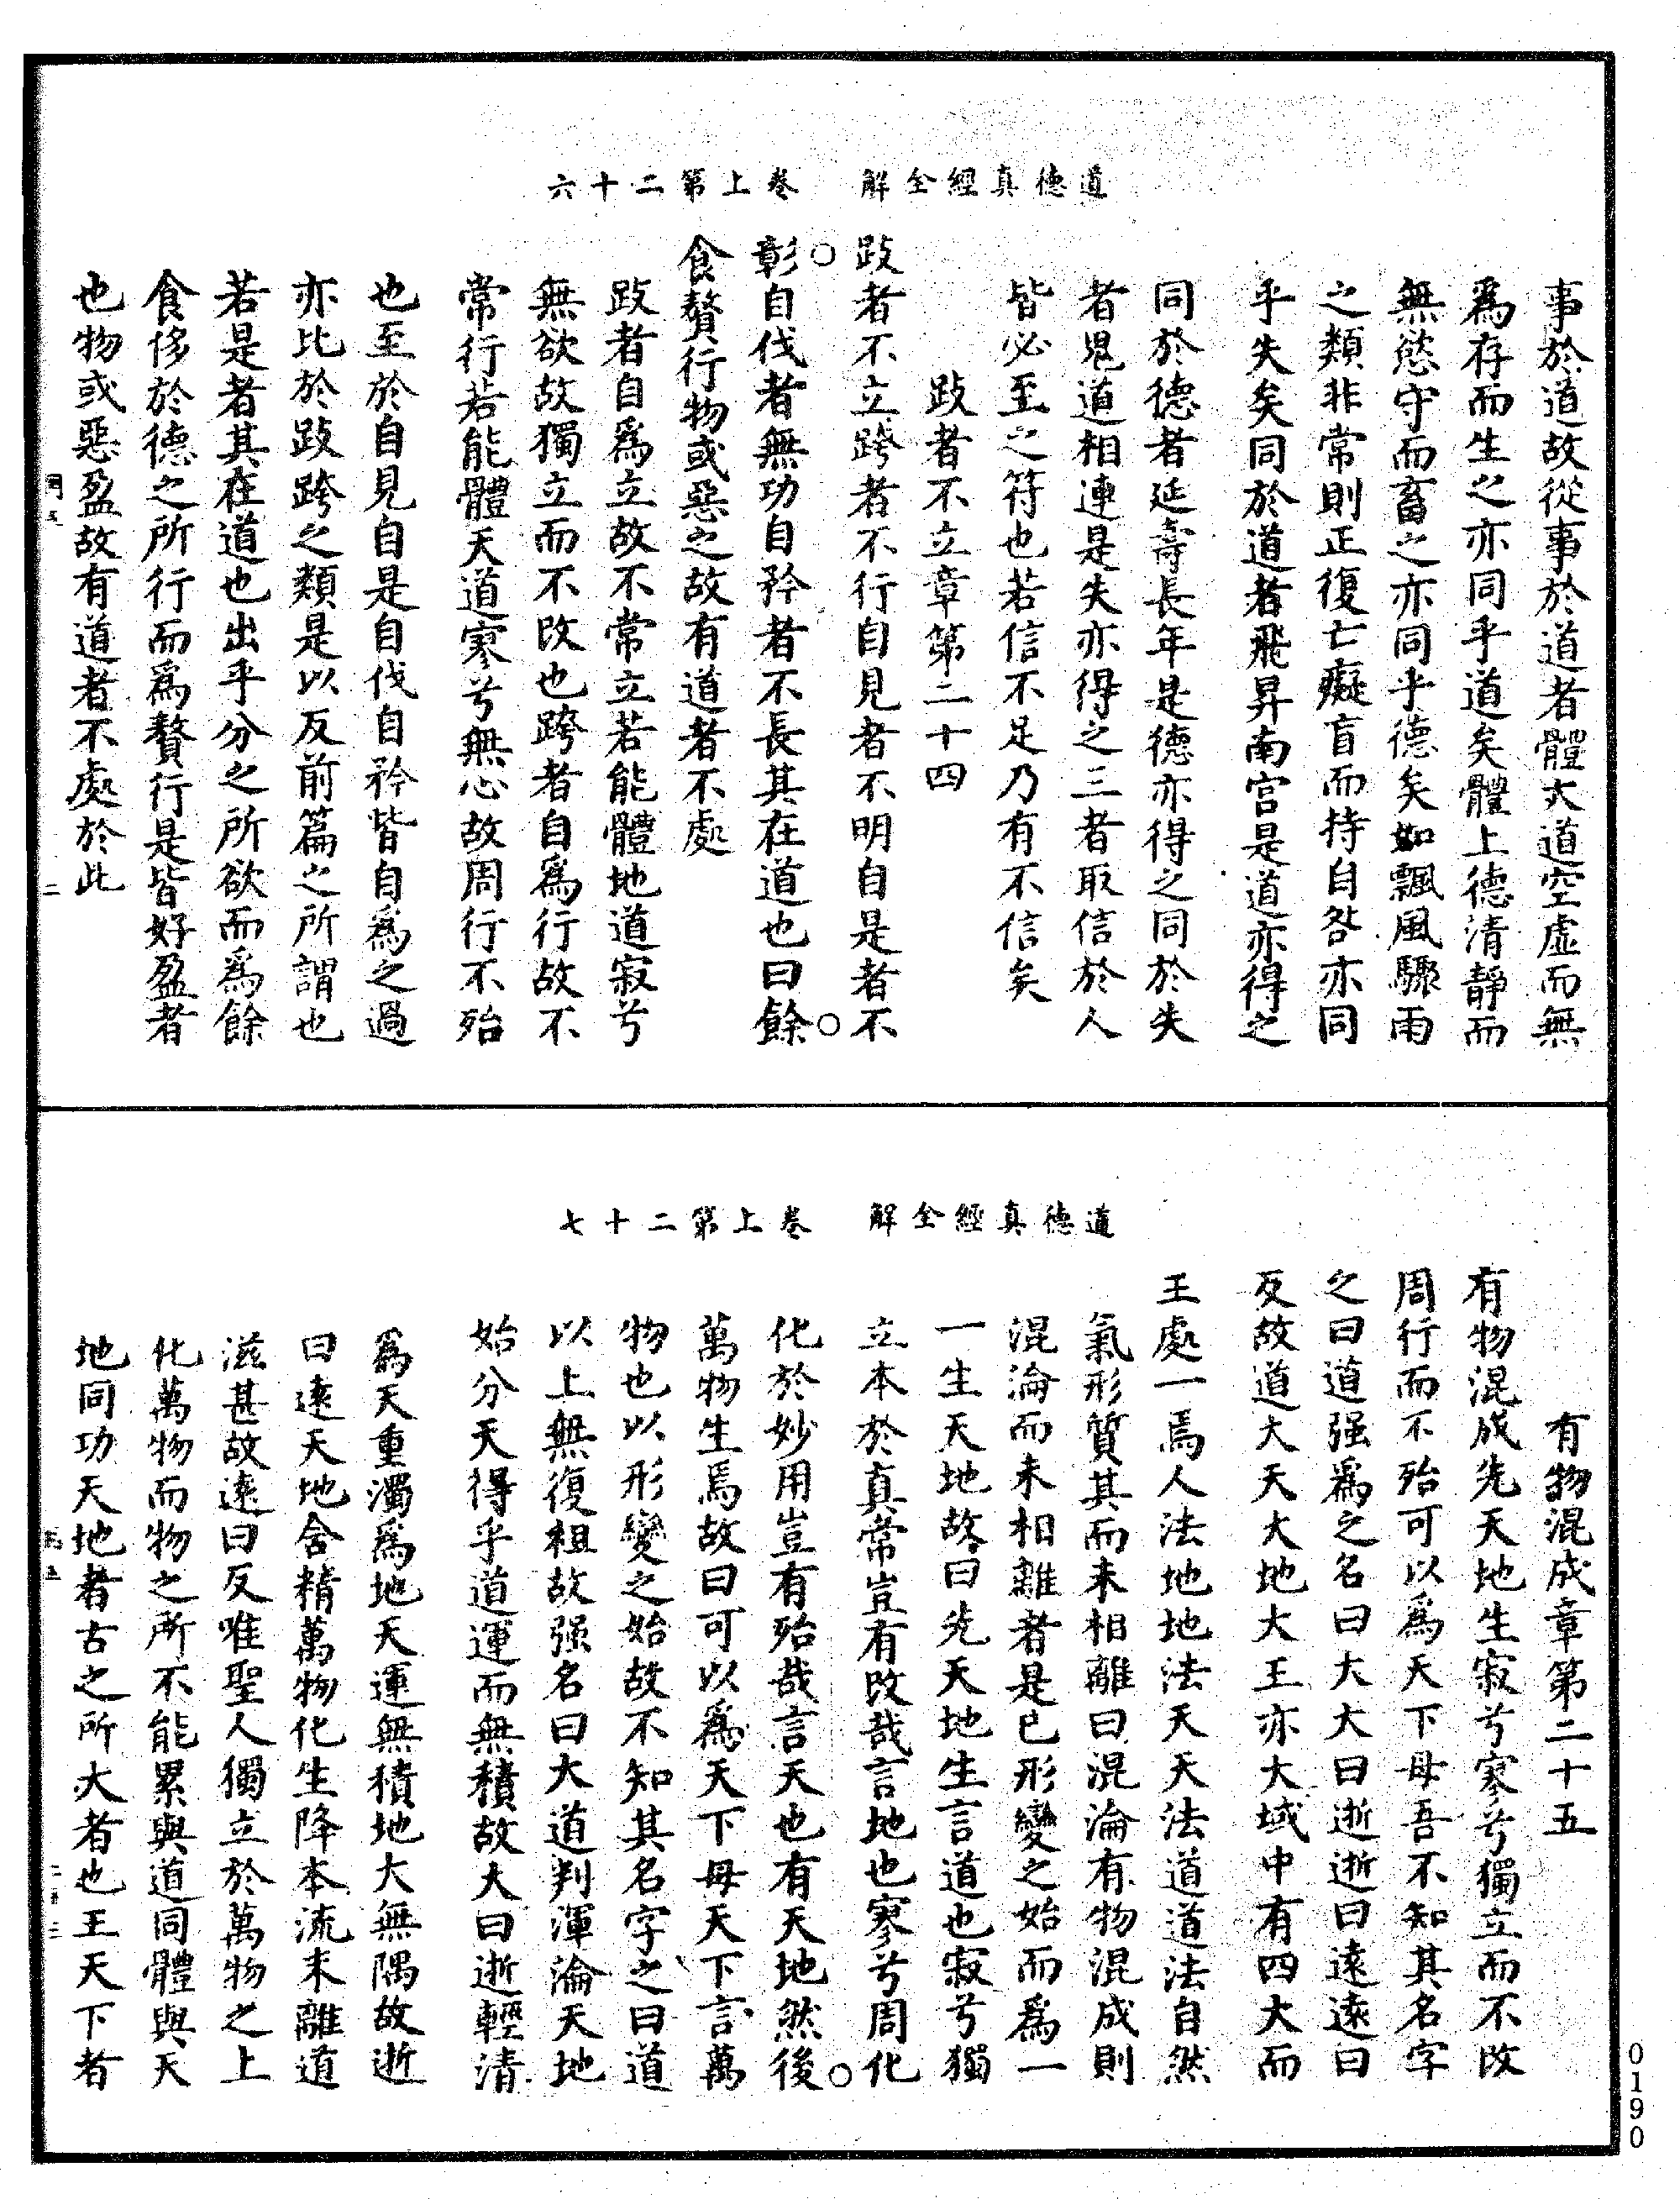 道德真經全解　卷上第二十六
事於道故從事於道者體大道空虛而無
爲存而生之亦同乎道矣體上德清靜而
無慾守而畜之亦同乎德矣如飄風驟雨
之類非常則正復亡癡盲而持自咎亦同
乎失矣同於道者飛昇南宮是道亦得之
同於德者延壽長年是德亦得之同於失
者鬼道相連是失亦得之三者取信於人
皆必至之符也若信不足乃有不信矣
跂者不立章第二十四
跂者不立跨者不行自見者不明自是者不
彰自伐者無功自矜者不長其在道也曰餘
食贅行物或惡之故有道者不處
跂者自爲立故不常立若能體地道寂兮
無欲故獨立而不改也跨者自爲行故不
常行若能體天道寥兮無心故周行不殆
也至於自見自是自伐自矜皆自爲之過
亦比於跂跨之類是以反前篇之所謂也
若是者其在道也出乎分之所欲而爲餘
食侈於德之所行而爲贅行是皆好盈者
也物或惡盈故有道者不處於此
道德真經全解　卷上第二十七
有物混成章第二十五
有物混成先天地生寂兮寥兮獨立而不改
周行而不殆可以爲天下母吾不知其名字
之曰道强爲之名曰大大曰逝逝曰遠遠曰
反故道大天大地大王亦大域中有四大而
王處一焉人法地地法天天法道道法自然
氣形質其而未相離曰混淪有物混成則
混淪而未相離者是已形變之始而爲一
一生天地故曰先天地生言道也寂兮獨
立本於真常豈有改哉言地也寥兮周化
化於妙用豈有殆哉言天也有天地然後
萬物生焉故曰可以爲天下母天下言萬
物也以形變之始故不知其名字之曰道
以上無復祖故强名曰大道判渾淪天地
始分天得乎道運而無積故大曰逝輕清
爲天重濁爲地天運無積地大無隅故逝
曰遠天地含精萬物化生降本流末離道
滋甚故遠曰反唯聖人獨立於萬物之上
化萬物而物之所不能累與道同體與天
地同功天地者古之所大者也王天下者
0190